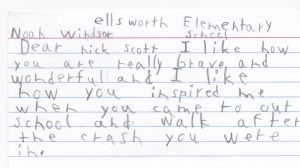 ellsworth Elementary
Noah Windsor school
Dear nick scott I like how
you are really brave and
wonderful and I like
how you inspired me
when you came to out
school and walk after
the crash you were
in.